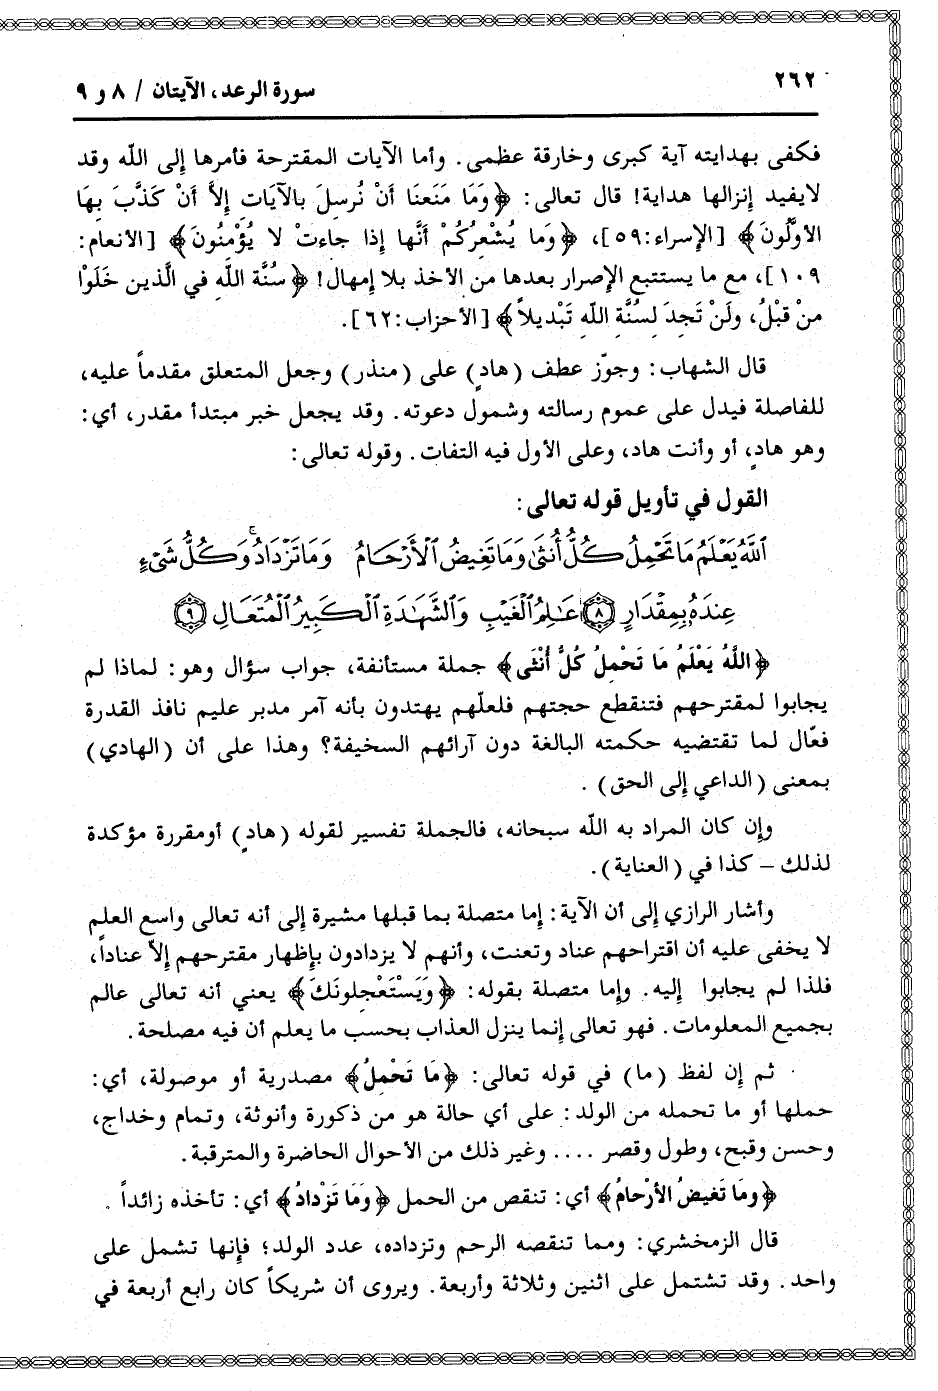 ٢٦٢
سورة الرعد، الآيتان / ٨ و ٩
فكفى بهدايته آية كبرى وخارقة عظمى. وأما الآيات المقترحة فأمرها إلى الله وقد
لايفيد إنزالها هداية! قال تعالى: ﴿وَمَا مَنَعنَا أَنْ نُرسِلَ بالآيَات إِلاَّ أَنْ كَذَّبَ بِهَا
الأوَّلُونَ﴾ [الإسراء:٥٩]، ﴿وَما يُشْعِرُكُمْ أَنَّها إِذا جاءتْ لا يُؤمِنُونَ﴾ [الأنعام:
١٠٩]، مع ما يستتبع الإصرار بعدها من الأخذ بلا إمهال! ﴿سُنَّة اللَّه في الَّذين خَلَوْا
منْ قبْلُ، ولَنْ تَجدَ لسُنَّة اللَّه تَبْديلاً﴾ [الأحزاب:٦٢].
قال الشهاب: وجوّز عطف (هادٍ) على (منذر) وجعل المتعلق مقدماً عليه،
للفاصلة فيدل على عموم رسالته وشمول دعوته. وقد يجعل خبر مبتدأ مقدر، أي:
وهو هادٍ، أو وأنت هاد، وعلى الأول فيه التفات. وقوله تعالى:
القول في تأويل قوله تعالى:
ٱللَّهُ يَعْلَمُ مَا تَحْمِلُ كُلُّ أُنثَىٰ وَمَا تَغِيضُ ٱلْأَرْحَامُ وَمَا تَزْدَادُ ۚ وَكُلُّ شَىْءٍ
عِندَهُۥ بِمِقْدَارٍ ٨ عَٰلِمُ ٱلْغَيْبِ وَٱلشَّهَٰدَةِ ٱلْكَبِيرُ ٱلْمُتَعَالِ ٩
﴿اللَّهُ يَعْلَمُ مَا تَحْملُ كُلُّ أُنْثَى﴾ جملة مستأنفة، جواب سؤال وهو: لماذا لم
يجابوا لمقترحهم فتنقطع حجتهم فلعلّهم يهتدون بأنه آمر مدبر عليم نافذ القدرة
فعّال لما تقتضيه حكمته البالغة دون آرائهم السخيفة؟ وهذا على أن (الهادي)
بمعنى (الداعي إلى الحق).
وإن كان المراد به الله سبحانه، فالجملة تفسير لقوله (هادٍ) أومقررة مؤكدة
لذلك – كذا في (العناية).
وأشار الرازي إلى أن الآية: إما متصلة بما قبلها مشيرة إلى أنه تعالى واسع العلم
لا يخفى عليه أن اقتراحهم عناد وتعنت، وأنهم لا يزدادون بإظهار مقترحهم إلاّ عناداً،
فلذا لم يجابوا إليه. وإما متصلة بقوله: ﴿وَيَسْتَعْجلونَكَ﴾ يعني أنه تعالى عالم
بجميع المعلومات. فهو تعالى إنما ينزل العذاب بحسب ما يعلم أن فيه مصلحة.
ثم إن لفظ (ما) في قوله تعالى: ﴿مَا تَحْملُ﴾ مصدرية أو موصولة، أي:
حملها أو ما تحمله من الولد: على أي حالة هو من ذكورة وأنوثة، وتمام وخداج،
وحسن وقبح، وطول وقصر .... وغير ذلك من الأحوال الحاضرة والمترقبة.
﴿ومَا تَغيضُ الأرْحامُ﴾ أي: تنقص من الحمل ﴿وَمَا تَزْدادُ﴾ أي: تأخذه زائداً.
قال الزمخشري: ومما تنقصه الرحم وتزداده، عدد الولد؛ فإنها تشمل على
واحد. وقد تشتمل على اثنين وثلاثة وأربعة. ويروى أن شريكاً كان رابع أربعة في